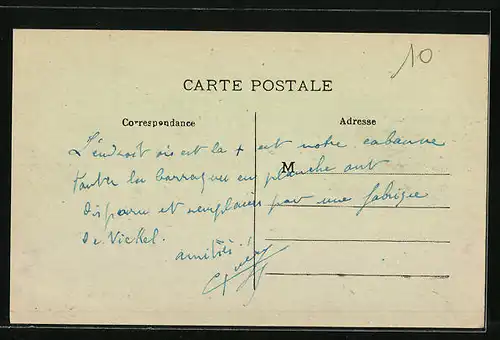 10
CARTE POSTALE
Correspondance
Adresse
M
L'endroit où est la + est notre cabanne
toutes les barraques en planche ont
disparu et remplacées par une fabrique
de Nickel.
amitiés